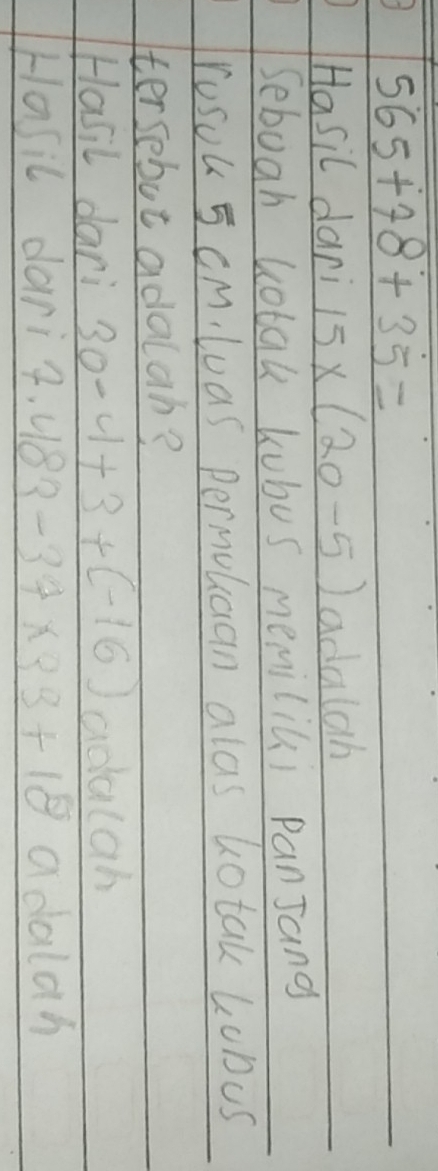 565+78+35=
Hasil dari 15 x (20-5) adalah
Sebuah kotak kubus memiliki panjang
rusuk 5 cm. luas permukaan alas kotak kubus
tersebut adalah?
Hasil dari 30-4+3+(-16) adalah
Hasil dari 7.483-37x33+18 adalah